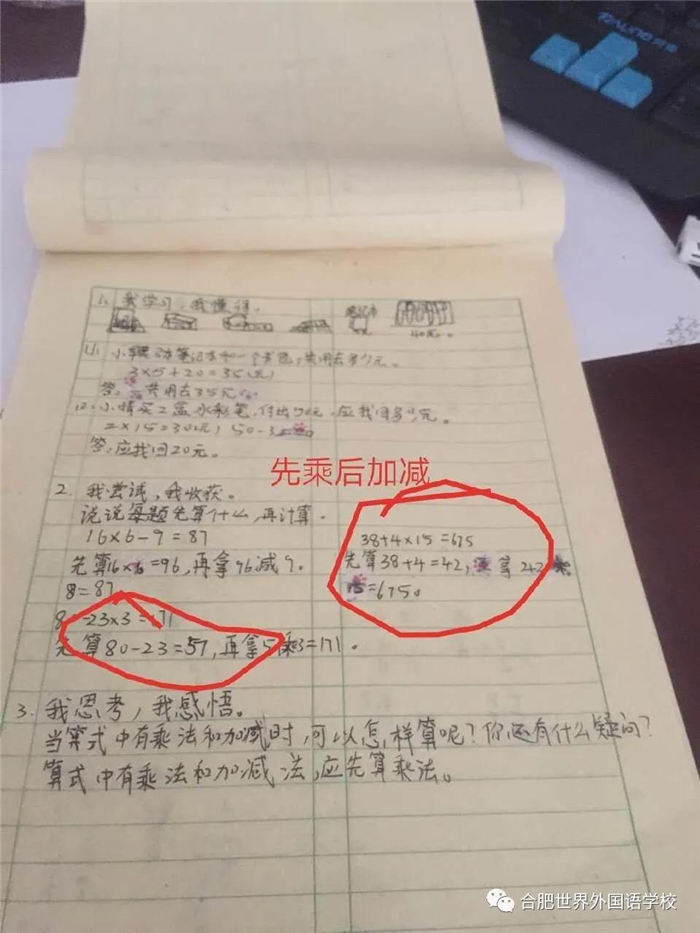 1. 我学习，我懂得。
共用去多少元。
3×5+20=35(元)
答：共用去35元。
(2).小晴买2盒水彩笔，付出50元，应找回多少元。
2×15=30(元) 50-3
答：应找回20元。
先乘后加减
2. 我尝试，我收获。
说说每题先算什么，再计算.
16×6-9=87
38+4×15=675
先算16×6=96，再拿96减9。
先算38+4=42，
8=87
=675。
-23×3=171
先算80-23=57，再拿57乘3=171。
3. 我思考，我感悟。
当算式中有乘法和加减时，可以怎样算呢？你还有什么疑问？
算式中有乘法和加减法，应先算乘法。
合肥世界外国语学校